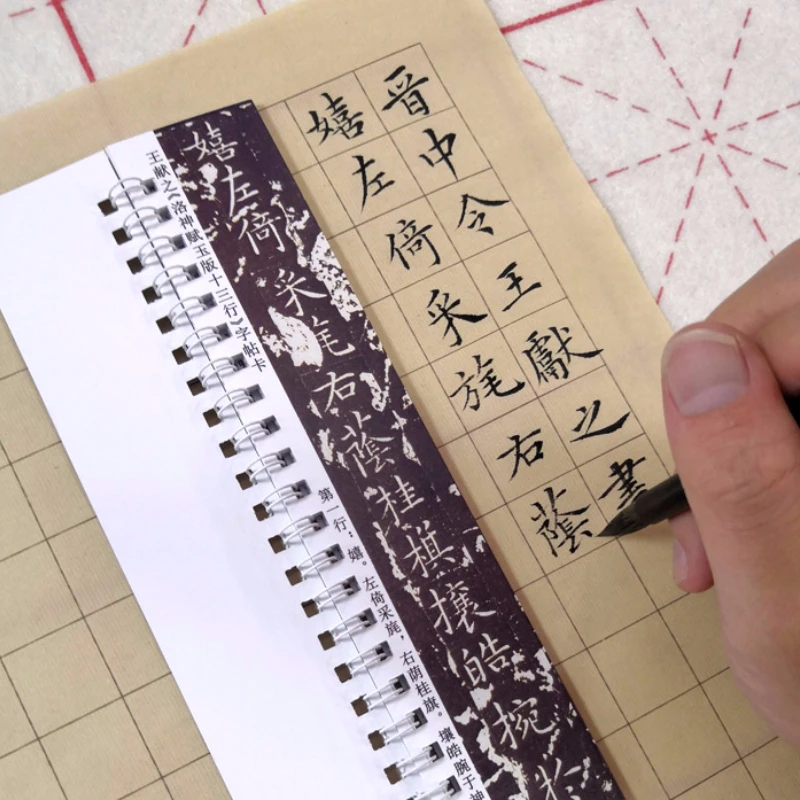 晋中令王獻之書
嬉左倚采旄右蔭
嬉左倚采旄右蔭桂棋攘皓捥於
王献之《洛神赋玉版十三行》字帖卡
第一行：嬉。左倚采旄，右荫桂旗。壤皓腕于神